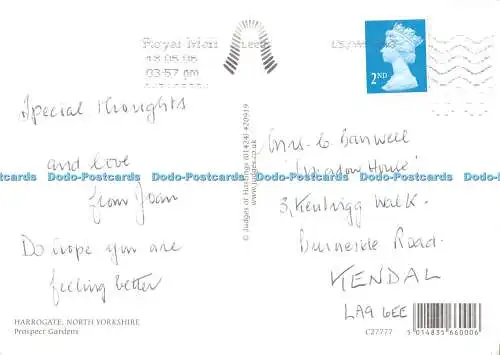 Royal Mail
Leeds
18.05.06
03:57 pm
2ND
Special thoughts
and love
from Joan
Do hope you are
feeling better
Mrs C. Banwell
House'
3, Kentrigg Walk.
Burneside Road.
KENDAL
LA9 6EE
© Judges of Hastings (01424) 420919
www.judges.co.uk
HARROGATE, NORTH YORKSHIRE
Prospect Gardens
C27777
5 014835 660006
Dodo-Postcards Dodo-Postcards Dodo-Postcards Dodo-Postcards Dodo-Postcards